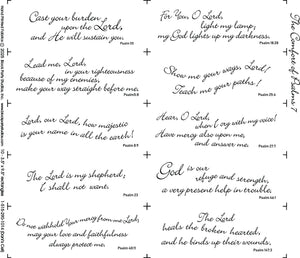 Cast your burden
upon the Lord,
and He will sustain you.
Psalm 55
For You, O Lord,
light my lamp;
my God lights up my darkness.
Psalm 18:28
Lead me, Lord,
in your righteousness
because of my enemies,
make your way straight before me.
Psalm 5:8
Show me your ways Lord!
Teach me your paths!
Psalm 25:4
Lord, our Lord, how majestic
is your name in all the earth!
Psalm 8:9
Hear, O Lord,
when I cry with my voice!
Have mercy also upon me,
and answer me.
Psalm 27:7
The Lord is my shepherd;
I shall not want.
Psalm 23
God is our
refuge and strength,
a very present help in trouble.
Psalm 46:1
Do not withhold Your mercy from me Lord;
may your love and faithfulness
always protect me.
Psalm 40:11
The Lord
heals the broken hearted,
and he binds up their wounds.
Psalm 147:3
The Comfort of Psalms 7